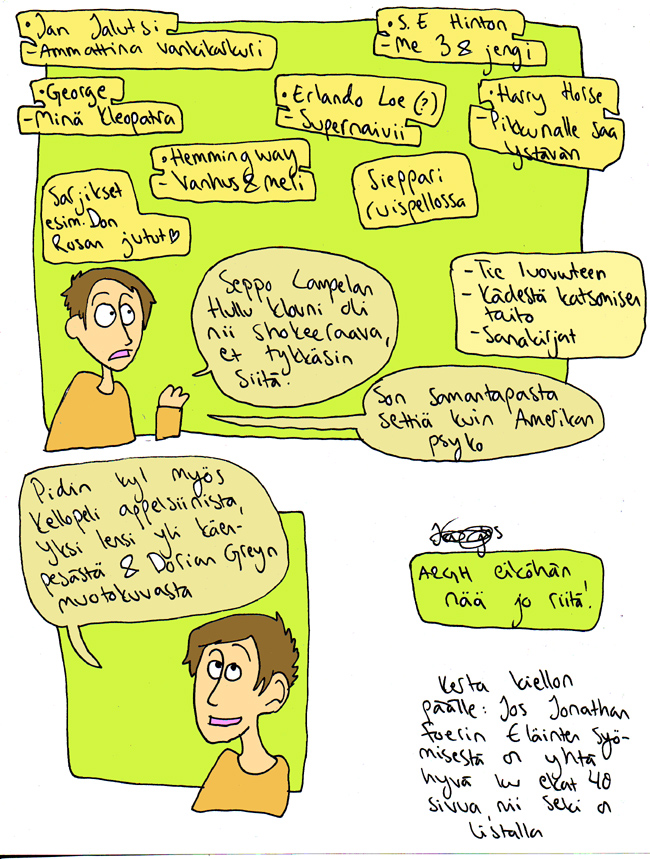 • Jan Jalutsi
- Ammattina vankikarkuri
• S.E Hinton
- Me 3 & jengi
• George
- Minä Kleopatra
• Erlando Loe (?)
- Supernaivii
• Harry Horse
- Pikkunalle saa
ystävän
• Hemmingway
- Vanhus & meri
Sieppari
ruispellossa
Sarjikset
esim. Don
Rosan jutut ♡
- Tie luovuuteen
- Kädestä katsomisen
taito
- Sanakirjat
Seppo Lampelan
Hullu klovni oli
nii shokeeraava,
et tykkäsin
siitä.
Son samantapasta
settiä kuin Amerikan
psyko
Pidin kyl myös
Kellopeli appelsiinista,
Yksi lensi yli käen-
pesästä & Dorian Greyn
muotokuvasta
ARGH eiköhän
nää jo riitä!
Kerta kiellon
päälle: Jos Jonathan
Foerin Eläinten syö-
misestä on yhtä
hyvä ku ekat 40
sivua, nii seki on
listalla